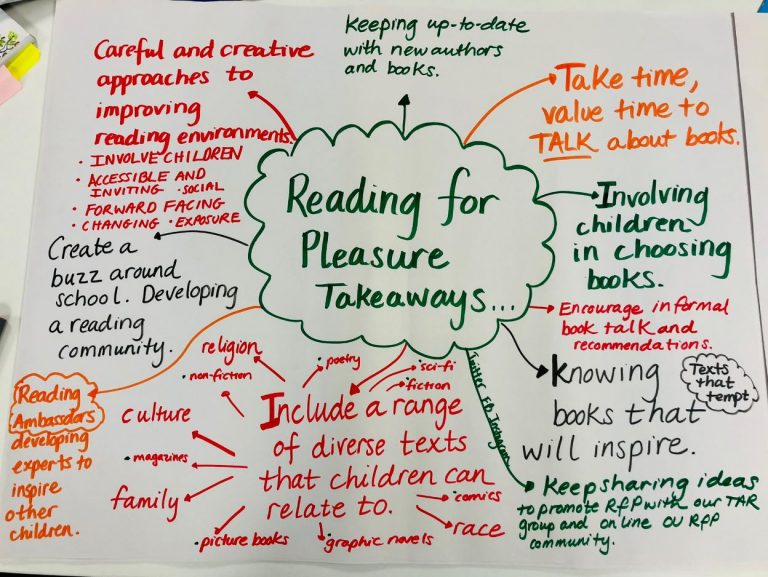 Reading for
Pleasure
Takeaways...
Careful and creative
approaches to
improving
reading environments.
• INVOLVE CHILDREN
• ACCESSIBLE AND
INVITING • SOCIAL
• FORWARD FACING
• CHANGING • EXPOSURE
Keeping up-to-date
with new authors
and books.
Take time,
value time to
TALK about books.
Involving
children
in choosing
books.
Encourage informal
book talk and
recommendations.
Knowing
books that
will inspire.
Texts
that
tempt
Twitter Fb Instagram
Keep sharing ideas
to promote RfP with our TAR
group and online OU RfP
community.
Include a range
of diverse texts
that children can
relate to.
• poetry
• sci-fi
• fiction
• comics
race
• graphic novels
• picture books
family
• magazines
culture
• non-fiction
religion
Create a
buzz around
school. Developing
a reading
community.
Reading
Ambassdors
developing
experts to
inspire
other
children.